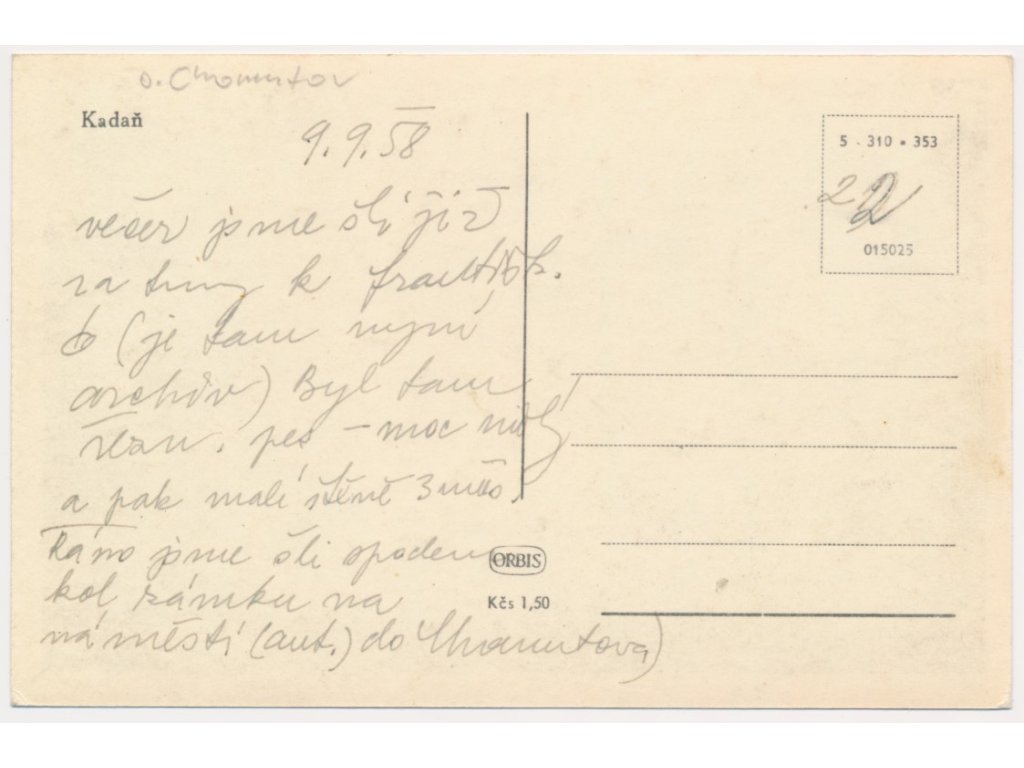 o. Chomutov
Kadaň
9.9.58
večer jsme šli již
za tmy k františk.
(je tam nyní
archiv) Byl tam
řezn. pes – moc milý
a pak malé štěně 3 měs.
Ráno jsme šli spodem
kol zámku na
náměstí (aut.) do Chomutova)
5 . 310 • 353
22
015025
ORBIS
Kčs 1,50